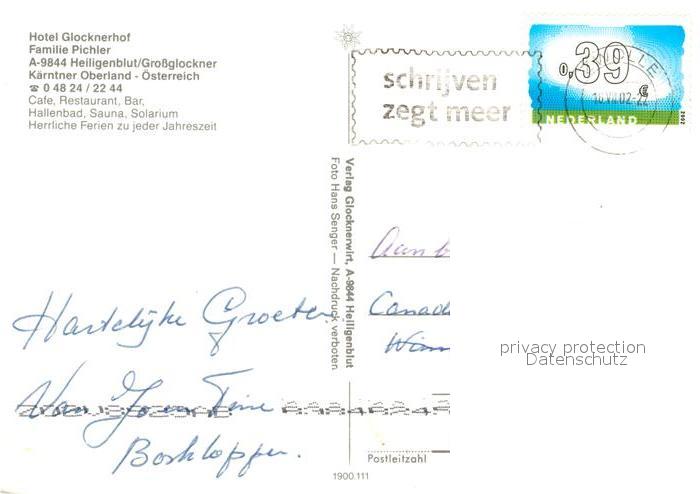 Hotel Glocknerhof
Familie Pichler
A-9844 Heiligenblut/Großglockner
Kärntner Oberland - Österreich
☎ 0 48 24 / 22 44
Cafe, Restaurant, Bar,
Hallenbad, Sauna, Solarium
Herrliche Ferien zu jeder Jahreszeit
schrijven
zegt meer
0,39
€
NEDERLAND
2002
Verlag Glocknerwirt, A-9844 Heiligenblut
Foto Hans Senger — Nachdruck verboten.
Aan
Canad
Hartelijke Groeten
Van
Boskloppper.
privacy protection
Datenschutz
Postleitzahl
1900.111